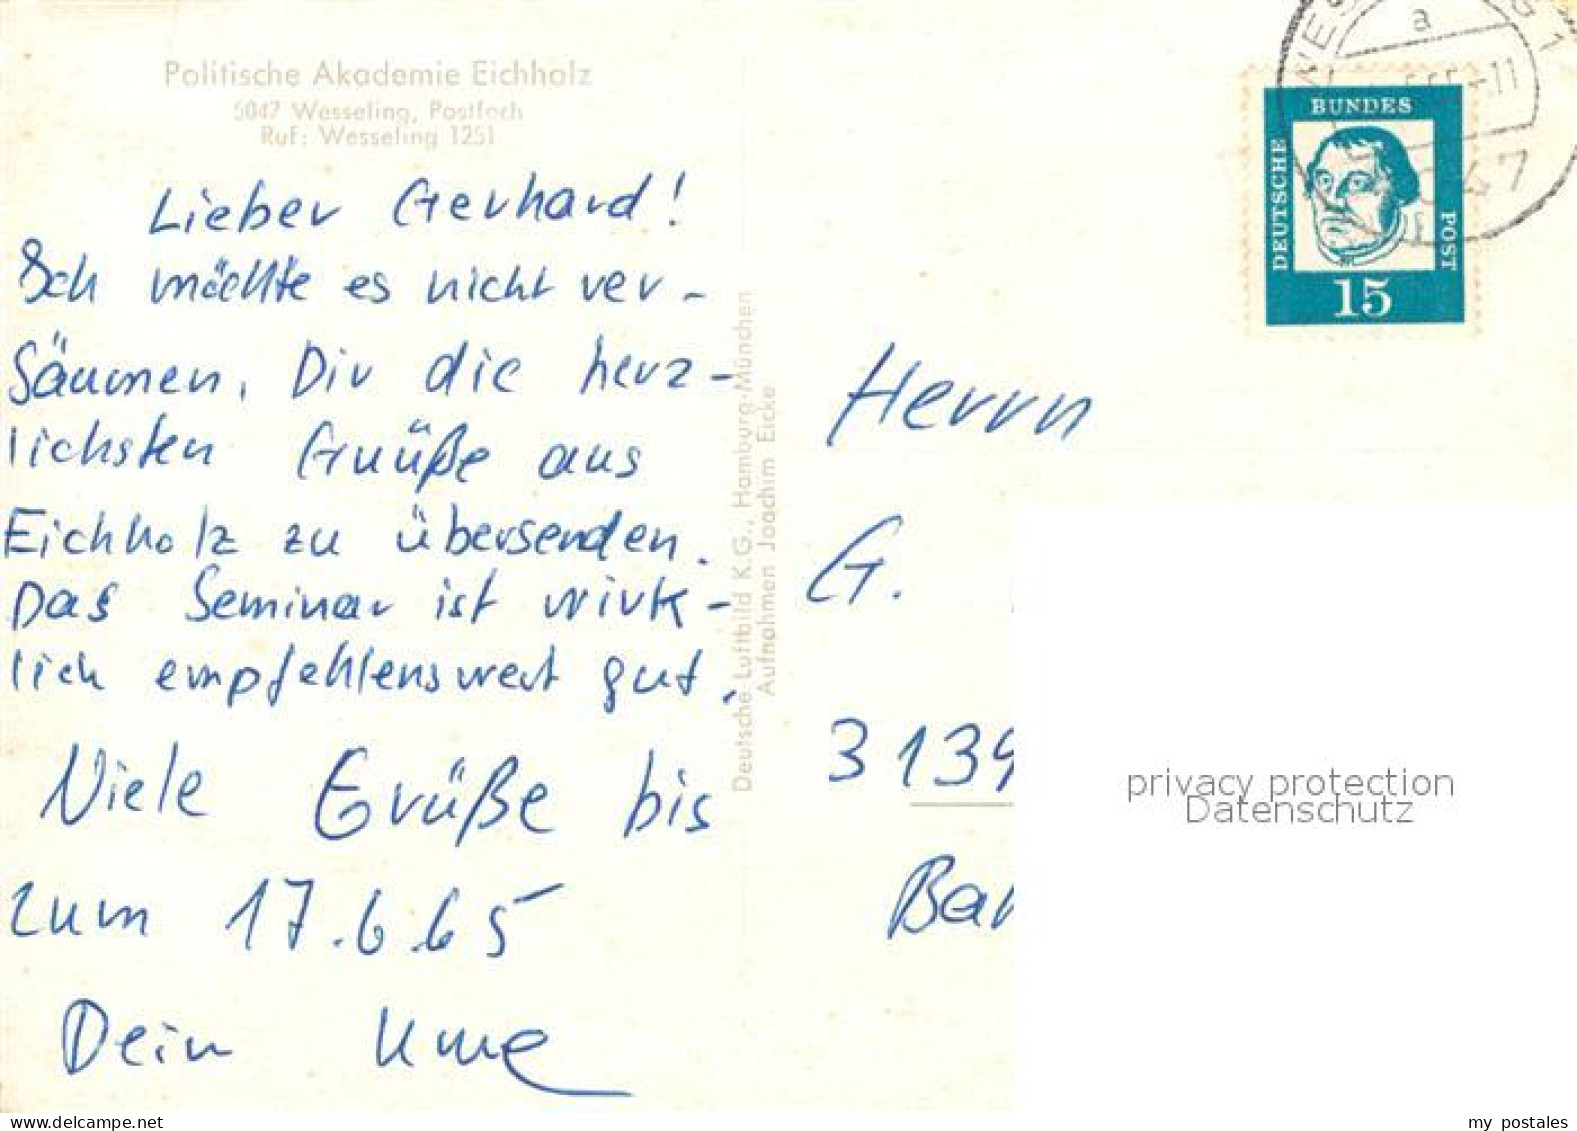 Politische Akademie Eichholz
5047 Wesseling, Postfach
Ruf: Wesseling 1251
Lieber Gerhard!
Ich möchte es nicht ver-
säumen, Dir die herz-
lichsten Grüße aus
Eichholz zu übersenden.
Das Seminar ist wirk-
lich empfehlenswert gut.
Viele Grüße bis
zum 17.6.65
Dein Uwe
Deutsche Luftbild K.G., Hamburg-München
Aufnahmen Joachim Eicke
DEUTSCHE BUNDES POST
15
5047
a
Herrn
G.
3139
privacy protection
Datenschutz
www.delcampe.net
my postales